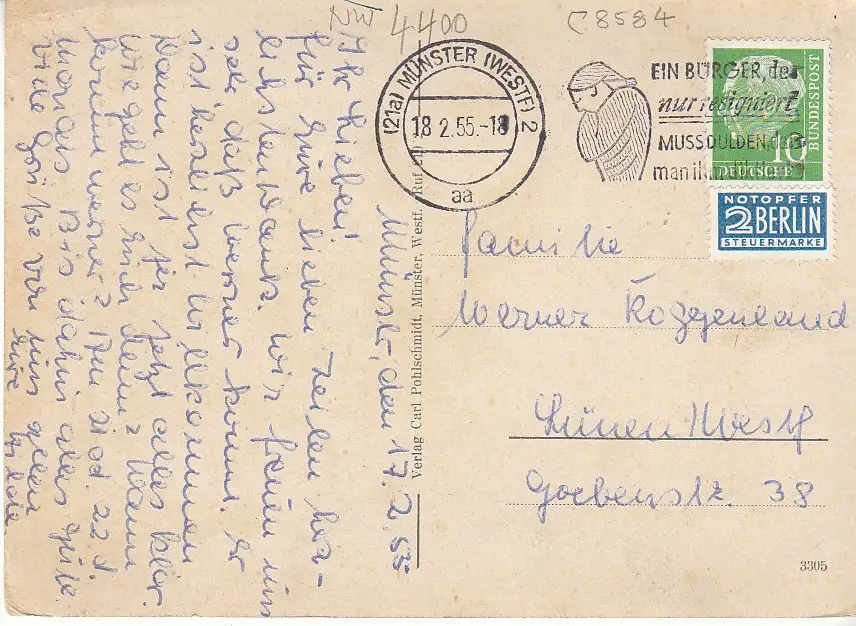 NW 4400
C 8584
(21a) MÜNSTER (WESTF) 2
18.2.55.-18
aa
EIN BÜRGER, der
nur resigniert
MUSS DULDEN, das
man ihn
10
DEUTSCHE
BUNDESPOST
NOTOPFER
2 BERLIN
STEUERMARKE
Münster, den 17.2.55
Ihr Lieben!
Für Eure lieben Zeilen herz-
lichsten Dank. Wir freuen uns
sehr daß Werner kommt. Er
ist herzlichst willkommen
Dann ist für jetzt alles klar.
Wie geht es Euch denn? Wann
kommt Werner? Am 21 od. 22 d.
Monats. Bis dahin alles Gute.
Viele Grüße von uns allen
Eure
Verlag Carl Pohlschmidt, Münster, Westf. Ruf
Familie
Werner Roggenland
Lünen/Westf
Goebenstr. 38
3305